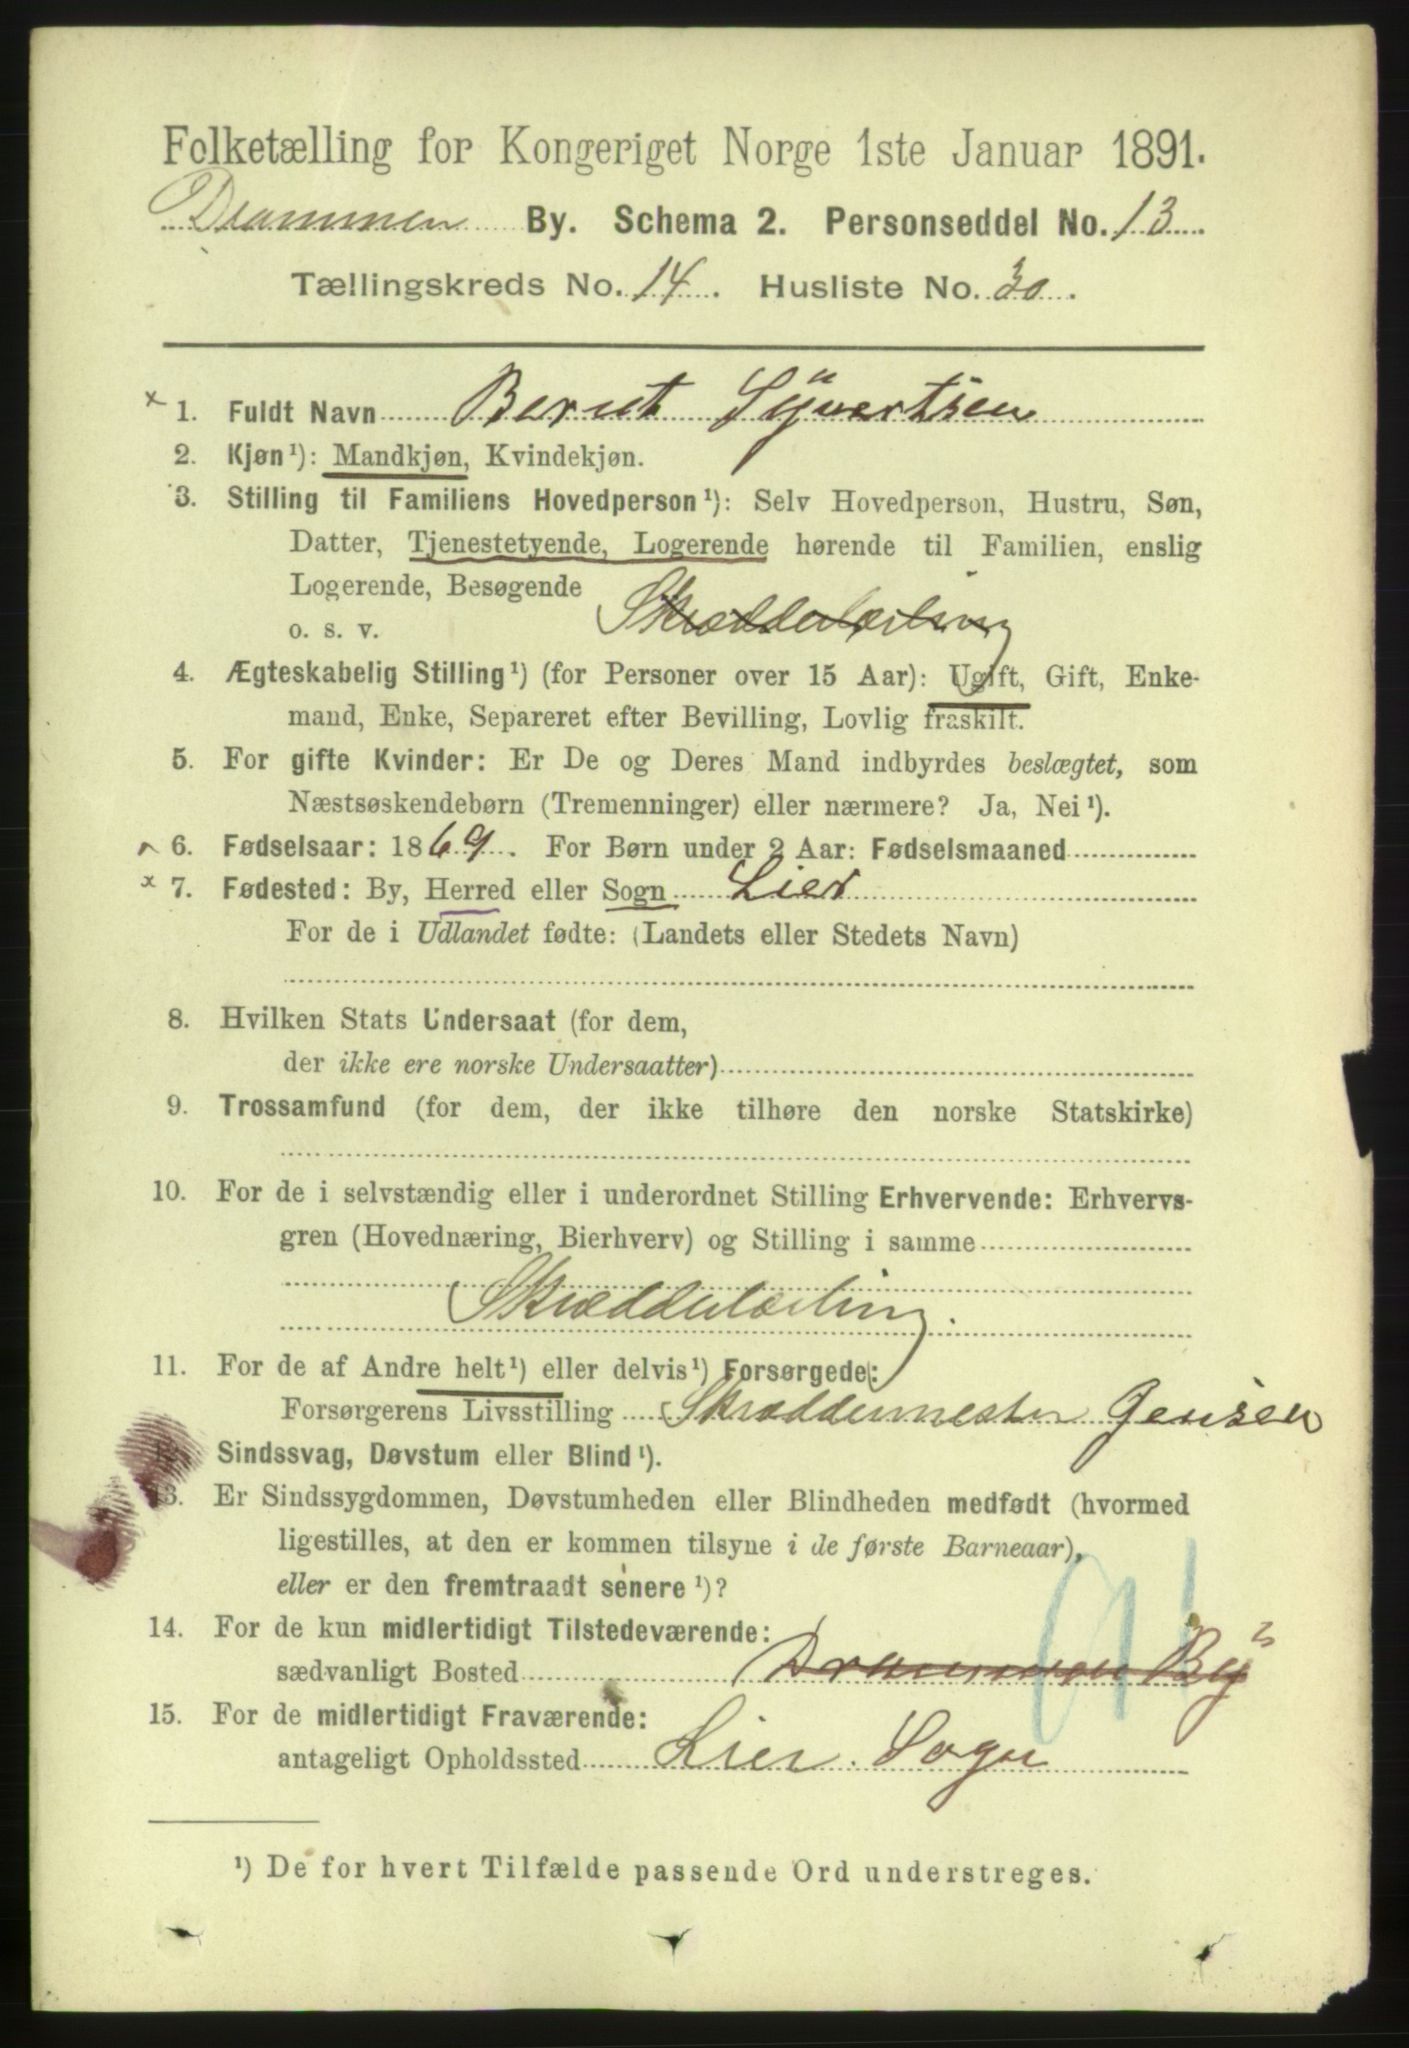 Folketælling for Kongeriget Norge 1ste Januar 1891.
Drammen By. Schema 2. Personseddel No. 13
Tællingskreds No. 14. Husliste No. 30.
x 1. Fuldt Navn Bernt Syvertsen
2. Kjøn¹): Mandkjøn, Kvindekjøn.
3. Stilling til Familiens Hovedperson¹): Selv Hovedperson, Hustru, Søn,
Datter, Tjenestetyende, Logerende hørende til Familien, enslig
Logerende, Besøgende
o. s. v. Skrædderlærling
4. Ægteskabelig Stilling¹) (for Personer over 15 Aar): Ugift, Gift, Enke-
mand, Enke, Separeret efter Bevilling, Lovlig fraskilt.
5. For gifte Kvinder: Er De og Deres Mand indbyrdes beslægtet, som
Næstsøskendebørn (Tremenninger) eller nærmere? Ja, Nei¹).
6. Fødselsaar: 1869. For Børn under 2 Aar: Fødselsmaaned
x 7. Fødested: By, Herred eller Sogn Lier
For de i Udlandet fødte: (Landets eller Stedets Navn)
8. Hvilken Stats Undersaat (for dem,
der ikke ere norske Undersaatter)
9. Trossamfund (for dem, der ikke tilhøre den norske Statskirke)
10. For de i selvstændig eller i underordnet Stilling Erhvervende: Erhvervs-
gren (Hovednæring, Bierhverv) og Stilling i samme
Skrædderlærling.
11. For de af Andre helt¹) eller delvis¹) Forsørgede:
Forsørgerens Livsstilling Skræddermester Jensen
12. Sindssvag, Døvstum eller Blind¹).
13. Er Sindssygdommen, Døvstumheden eller Blindheden medfødt (hvormed
ligestilles, at den er kommen tilsyne i de første Barneaar),
eller er den fremtraadt senere¹)?
14. For de kun midlertidigt Tilstedeværende:
sædvanligt Bosted Drammen By
15. For de midlertidigt Fraværende:
antageligt Opholdssted Lier Sogn
¹) De for hvert Tilfælde passende Ord understreges.